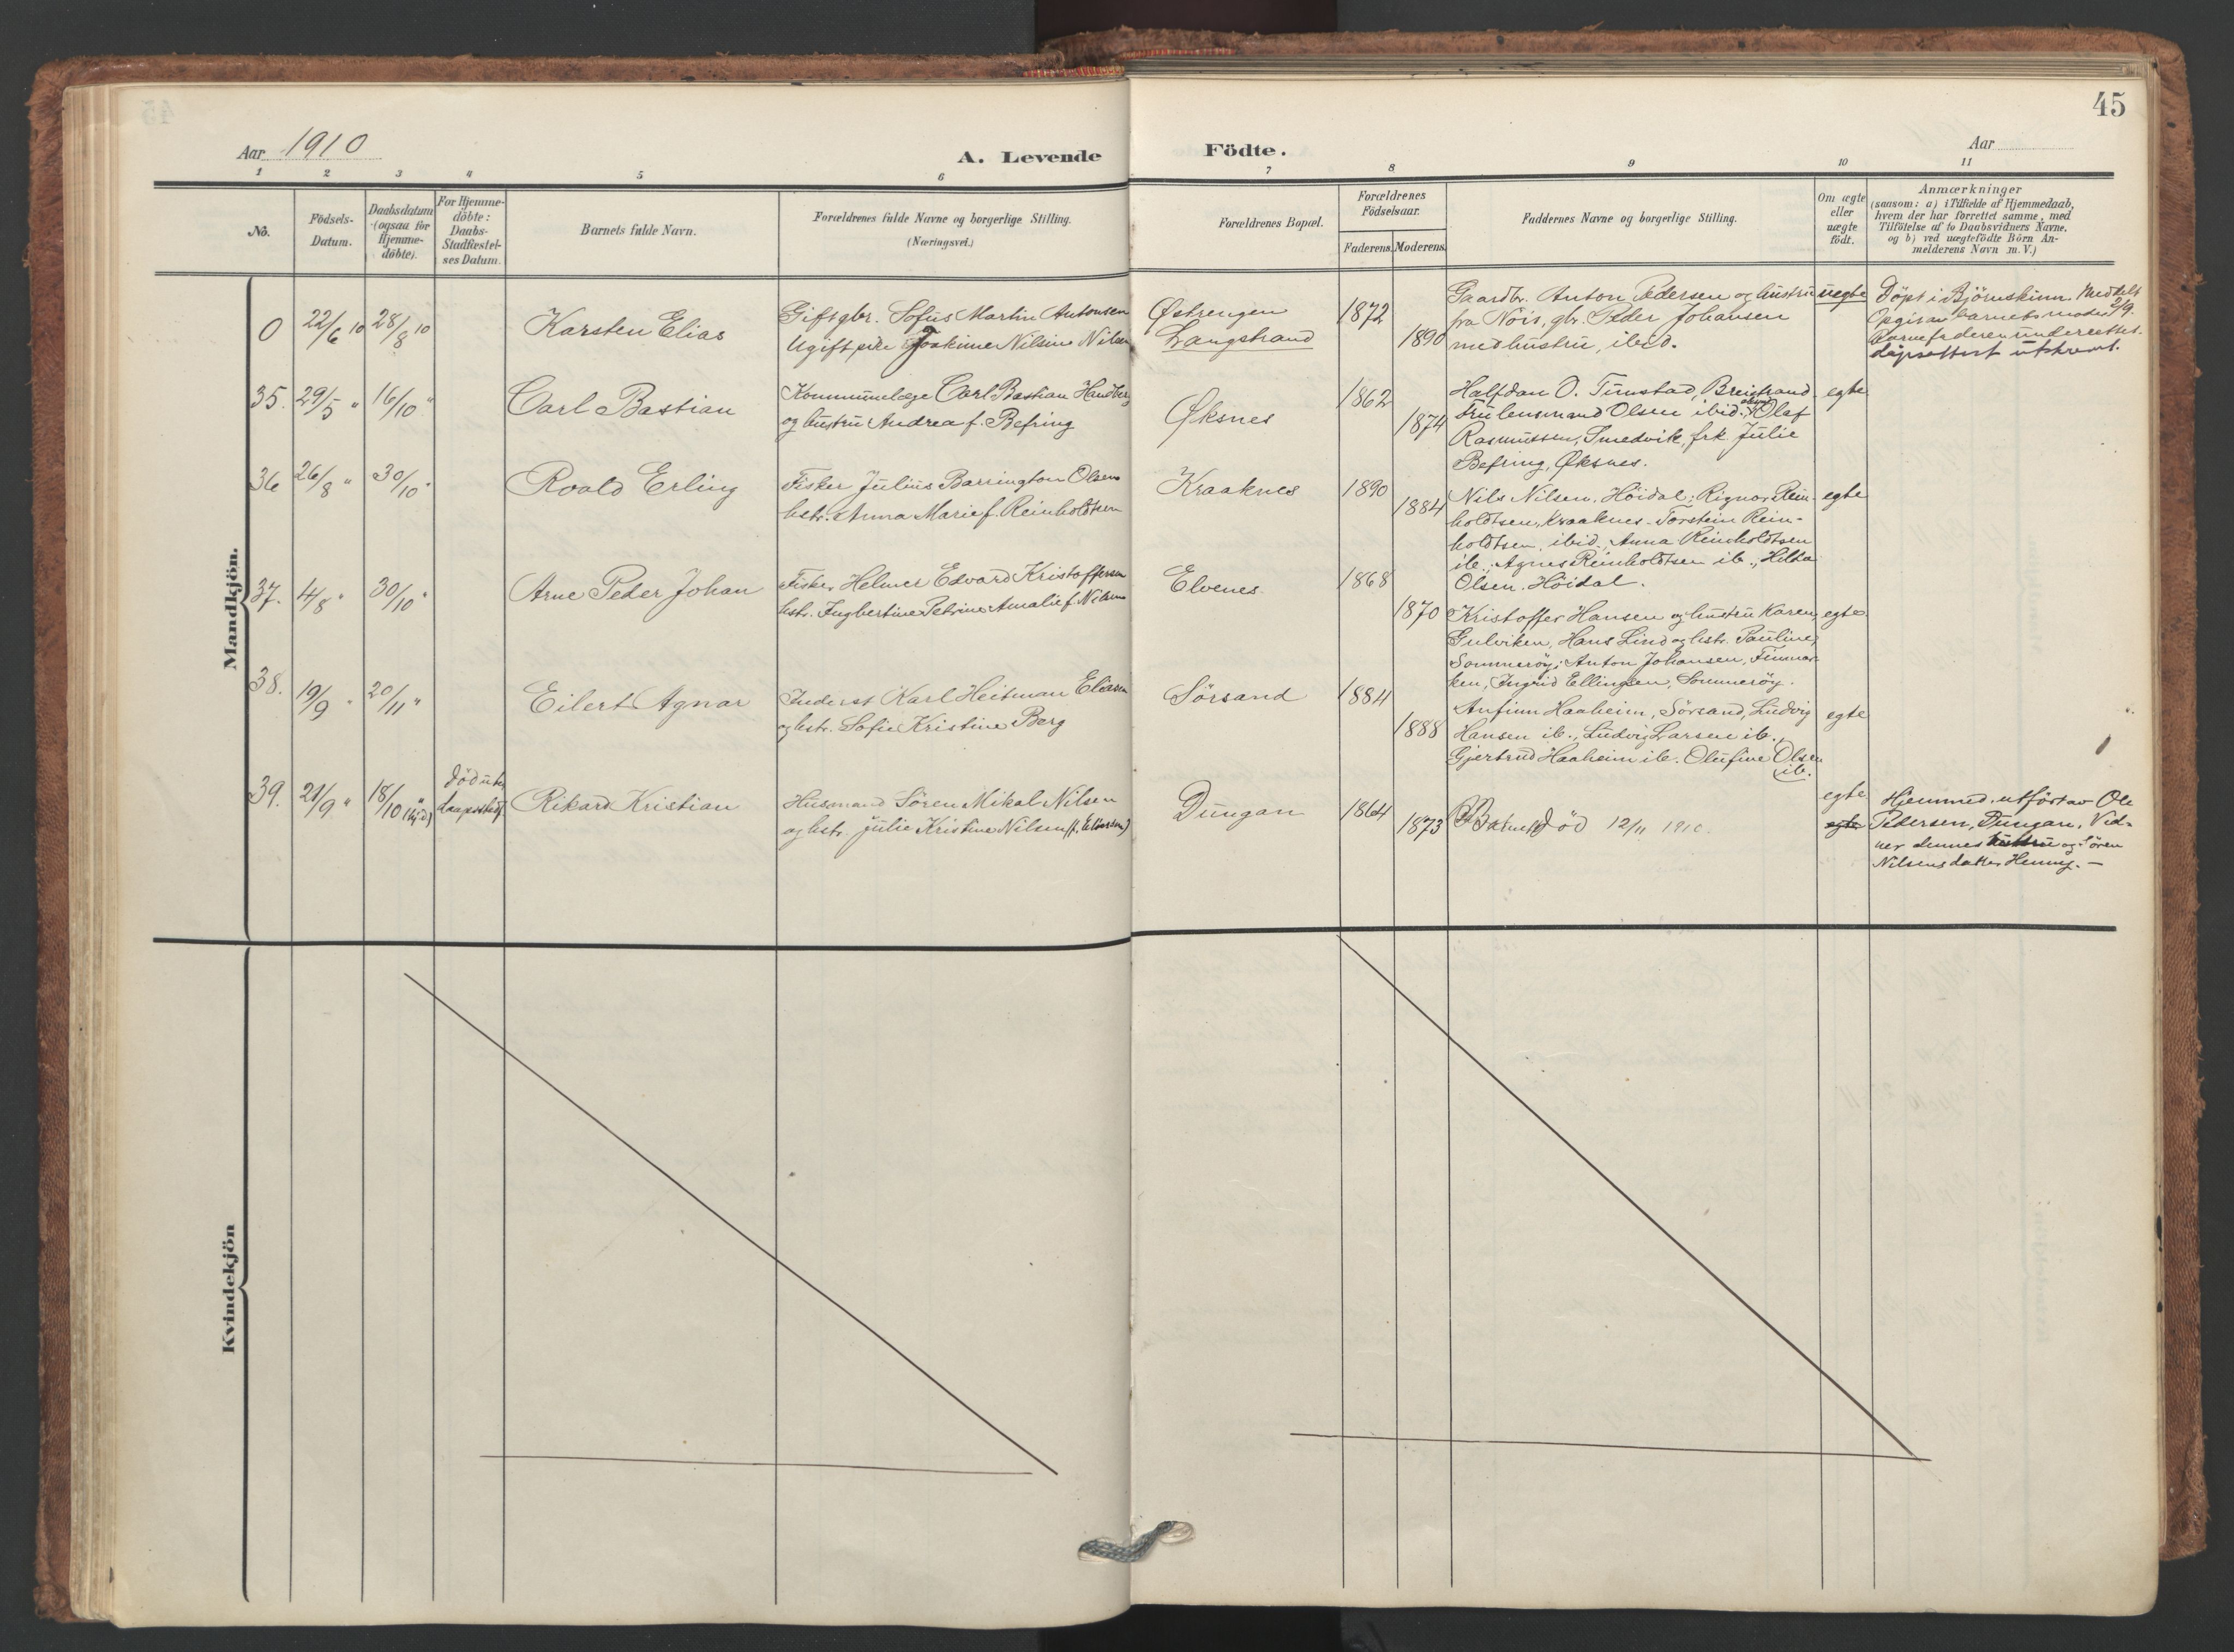 45
Aar 1910
A. Levende
Födte.
Aar
1 2 3 4 5 6 7 8 9 10 11
No.
Födsels-
Datum.
Daabsdatum
(ogsaa for
Hjemme-
döbte).
For Hjemme-
döbte:
Daabs-
Stadfæstel-
ses Datum.
Barnets fulde Navn.
Forældrenes fulde Navne og borgerlige Stilling.
(Næringsvei.)
Forældrenes Bopæl.
Forældrenes
Födselsaar.
Faderens. Moderens.
Faddernes Navne og borgerlige Stilling.
Om ægte
eller
uægte
födt.
Anmærkninger
(saasom: a) i Tilfælde af Hjemmedaab,
hvem der har forrettet samme, med
Tilföielse af to Daabsvidners Navne,
og b) ved uægtefödte Börn An-
melderens Navn m. V.)
Mandkjön.
0
22/6 10
28/8 10
Karsten Elias
Gift gbr. Sofus Martin Antonsen
Ugift pike Joakime Nilsine Nilsen
Østrengen
Langstrand
1872
1890
Gaardbr. Anton Pedersen og hustru
fra Nois, gbr. Peder Johansen
med hustru, ibid.
uegte
Döpt i Björnskinn. Meddelt 2/9.
Opgit av barnets moder
Barnefaderen underrettet.
dåpsattest utskrevet.
35.
29/5 "
16/10 "
Carl Bastian
Kommunelæge Carl Bastian Handberg
og hustru Andrea f. Befring
Øksnes
1862
1874
Halfdan O. Tunstad, Breistrand
Fru lensmand Olsen ibid. Olaf
Rasmussen, Smedvik, frk. Julie
Befring, Øksnes.
egte
36
26/8 "
30/10 "
Roald Erling
Fisker Julius Barrington Olsen
hstr. Anna Marie f. Reinholdtsen
Kraaknes
1890
1884
Nils Nilsen, Höidal; Rignor Rein-
holdtsen, Kraaknes. Torstein Rein-
holdtsen, ibid., Anna Reinholdtsen
ib., Agnes Reinholdtsen ib., Hilda
Olsen, Höidal.
egte
37.
4/8 "
30/10 "
Arne Peder Johan
Fisker Helmer Edvard Kristoffersen
hstr. Ingbertine Petrine Amalie f. Nilsen
Elvenes
1868
1870
Kristoffer Hansen og hustru Karen,
Gulviken, Hans Lind og hstr. Pauline,
Sommeröy; Anton Johansen, Finmar-
ken, Ingrid Ellingsen, Sommeröy.
egte
38.
19/9 "
20/11 "
Eilert Agnar
Inderst Karl Heitman Eliassen
og hstr. Sofie Kristine Berg
Sörsand
1884
1888
Anfinn Haaheim, Sörsand, Ludvig
Hansen ib., Ludvig Larsen ib.,
Gjertrud Haaheim ib. Olufine Olsen
ib.
egte
39.
21/9 "
18/10 " (hjd)
Död uten
Daapsstadf.
Rikard Kristian
Husmand Sören Mikal Nilsen
og hstr. Julie Kristine Nilsen (f. Eliassen)
Dungan
1864
1873
Barnet död 12/11 1910.
egte
egte
Hjemmed. utfört av Ole
Pedersen, Dungan, Vid-
ner dennes hustru og Sören
Nilsens datter Henny. —
Kvindekjön